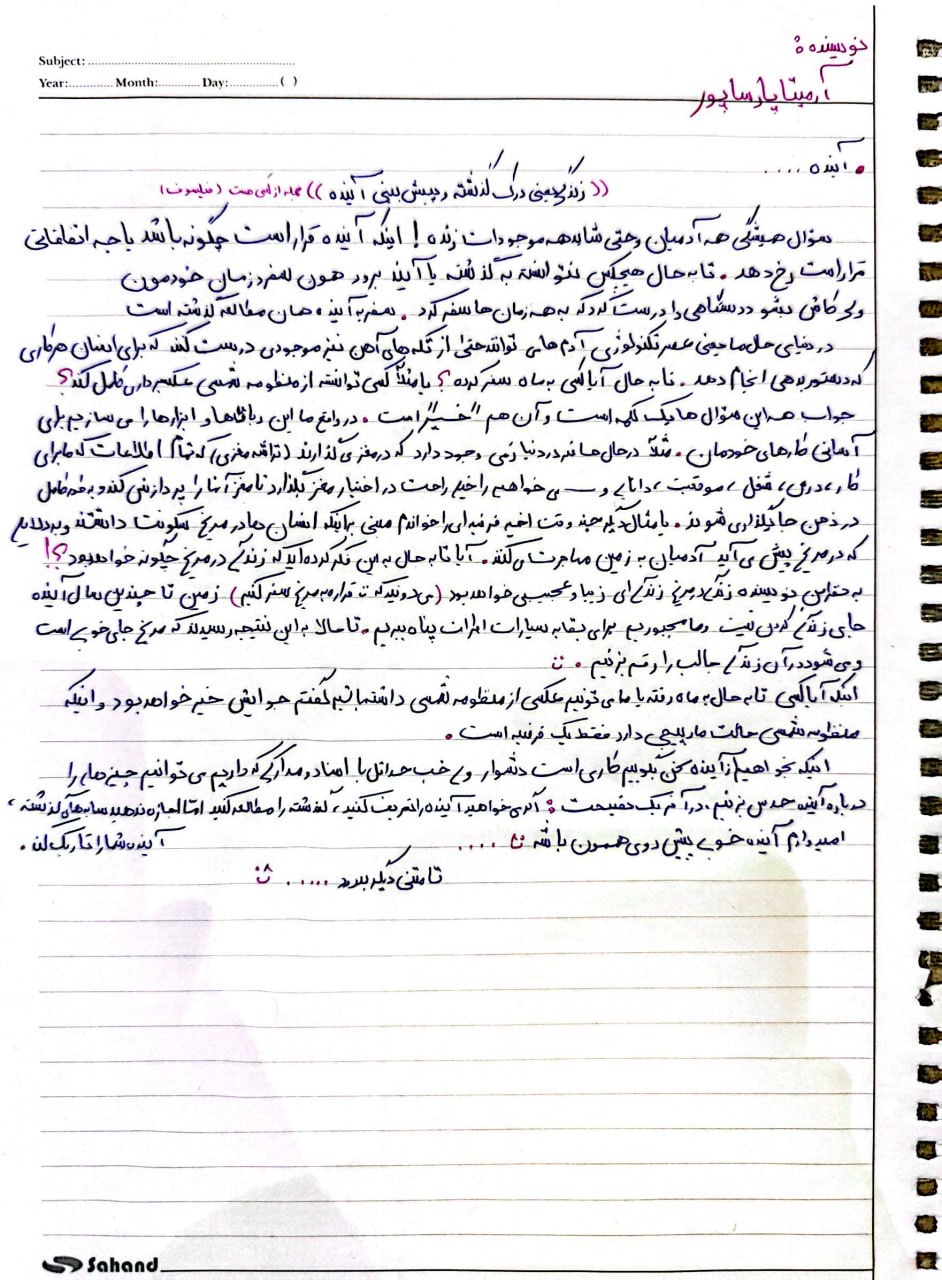 Subject:
Year: Month: Day: ( )
نویسنده:
آرمیتا پارساپور
• آینده ....
((زندگی یعنی درک گذشته و پیش بینی آینده)) جمله از کسی است (فیلسوف)
سؤال همیشگی همه آدمیان و حتی شاید همه موجودات زنده! اینکه آینده قرار است چگونه باشد یا چه اتفاقاتی
قرار است رخ دهد. تا به حال هیچکس نتوانسته به گذشته یا آینده برود همون سفر در زمان خودمون
ولی کاش میشود دستگاهی را درست کرد که به همه زمان ها سفر کرد. سفر به آینده همان مطالعه گذشته است
در دنیای حال ما یعنی عصر تکنولوژی آدم های توانند حتی از تکه های آهن نیز موجودی درست کنند که برای انسان هر کاری
که دستور بدهی انجام دهد. تا به حال آیا کسی به ماه سفر کرده؟ یا مثلاً کسی توانسته از منظومه شمسی عکسبرداری کامل کند؟
جواب همه این سؤال ها یک کلمه است و آن هم "خیر" است. در واقع ما این رباتها و ابزارها را می سازیم برای
آسانی کارهای خودمان. مثلاً در حال حاضر در دنیا وجود دارد که در مغز می گذارند (تراشه مغزی) که تمام اطلاعات که ما برای
کار، درس، شغل، موقیت، دانایی و ... می خواهیم را خیلی راحت در اختیار مغز بگذارد تا مغز آنها را پردازش کند و به طور کامل
در ذهن جایگذاری شوند. یا مثال دیگر چند وقت اخیر فرضیه ای را خواندم مبنی بر اینکه انسان ها در مریخ سکونت داشتند و به دلایلی
که در مریخ پیش می آید آدمیان به زمین مهاجرت می کنند. آیا تا به حال به این فکر کرده اید که زندگی در مریخ چگونه خواهد بود؟!
به نظر این نویسنده زندگی در مریخ زندگی ای زیبا و عجیبی خواهد بود (می دونید که قراره به مریخ سفر کنیم) زمین تا چندین سال آینده
جای زندگی کردن نیست و ما مجبوریم برای بقا به سیارات اطراف پناه ببریم. تا حالا به این نتیجه رسیدند که مریخ جای خوبی است
و می شود در آن زندگی جالب را رقم بزنیم.
اینکه آیا کسی تا به حال به ماه رفته یا ما می تونیم عکسی از منظومه شمسی داشته باشیم گفتم جوابش خیر خواهد بود و اینکه
منظومه شمسی حالت مارپیچی دارد فقط یک فرضیه است.
اینکه بخواهیم از آینده سخن بگوییم کاری است دشوار ولی خب حداقل با اسناد و مدارکی که داریم می توانیم چیزهای را
درباره آینده حدس بزنیم. در آخر یک حقیقت: اگر می خواهید آینده را تعریف کنید، گذشته را مطالعه کنید اما اجازه ندهید سایه های گذشته،
آینده شما را تاریک کند.
امیدوارم آینده خوبی پیش روی همون باشه ....
تا متنی دیگر بدرود .....
Sahand